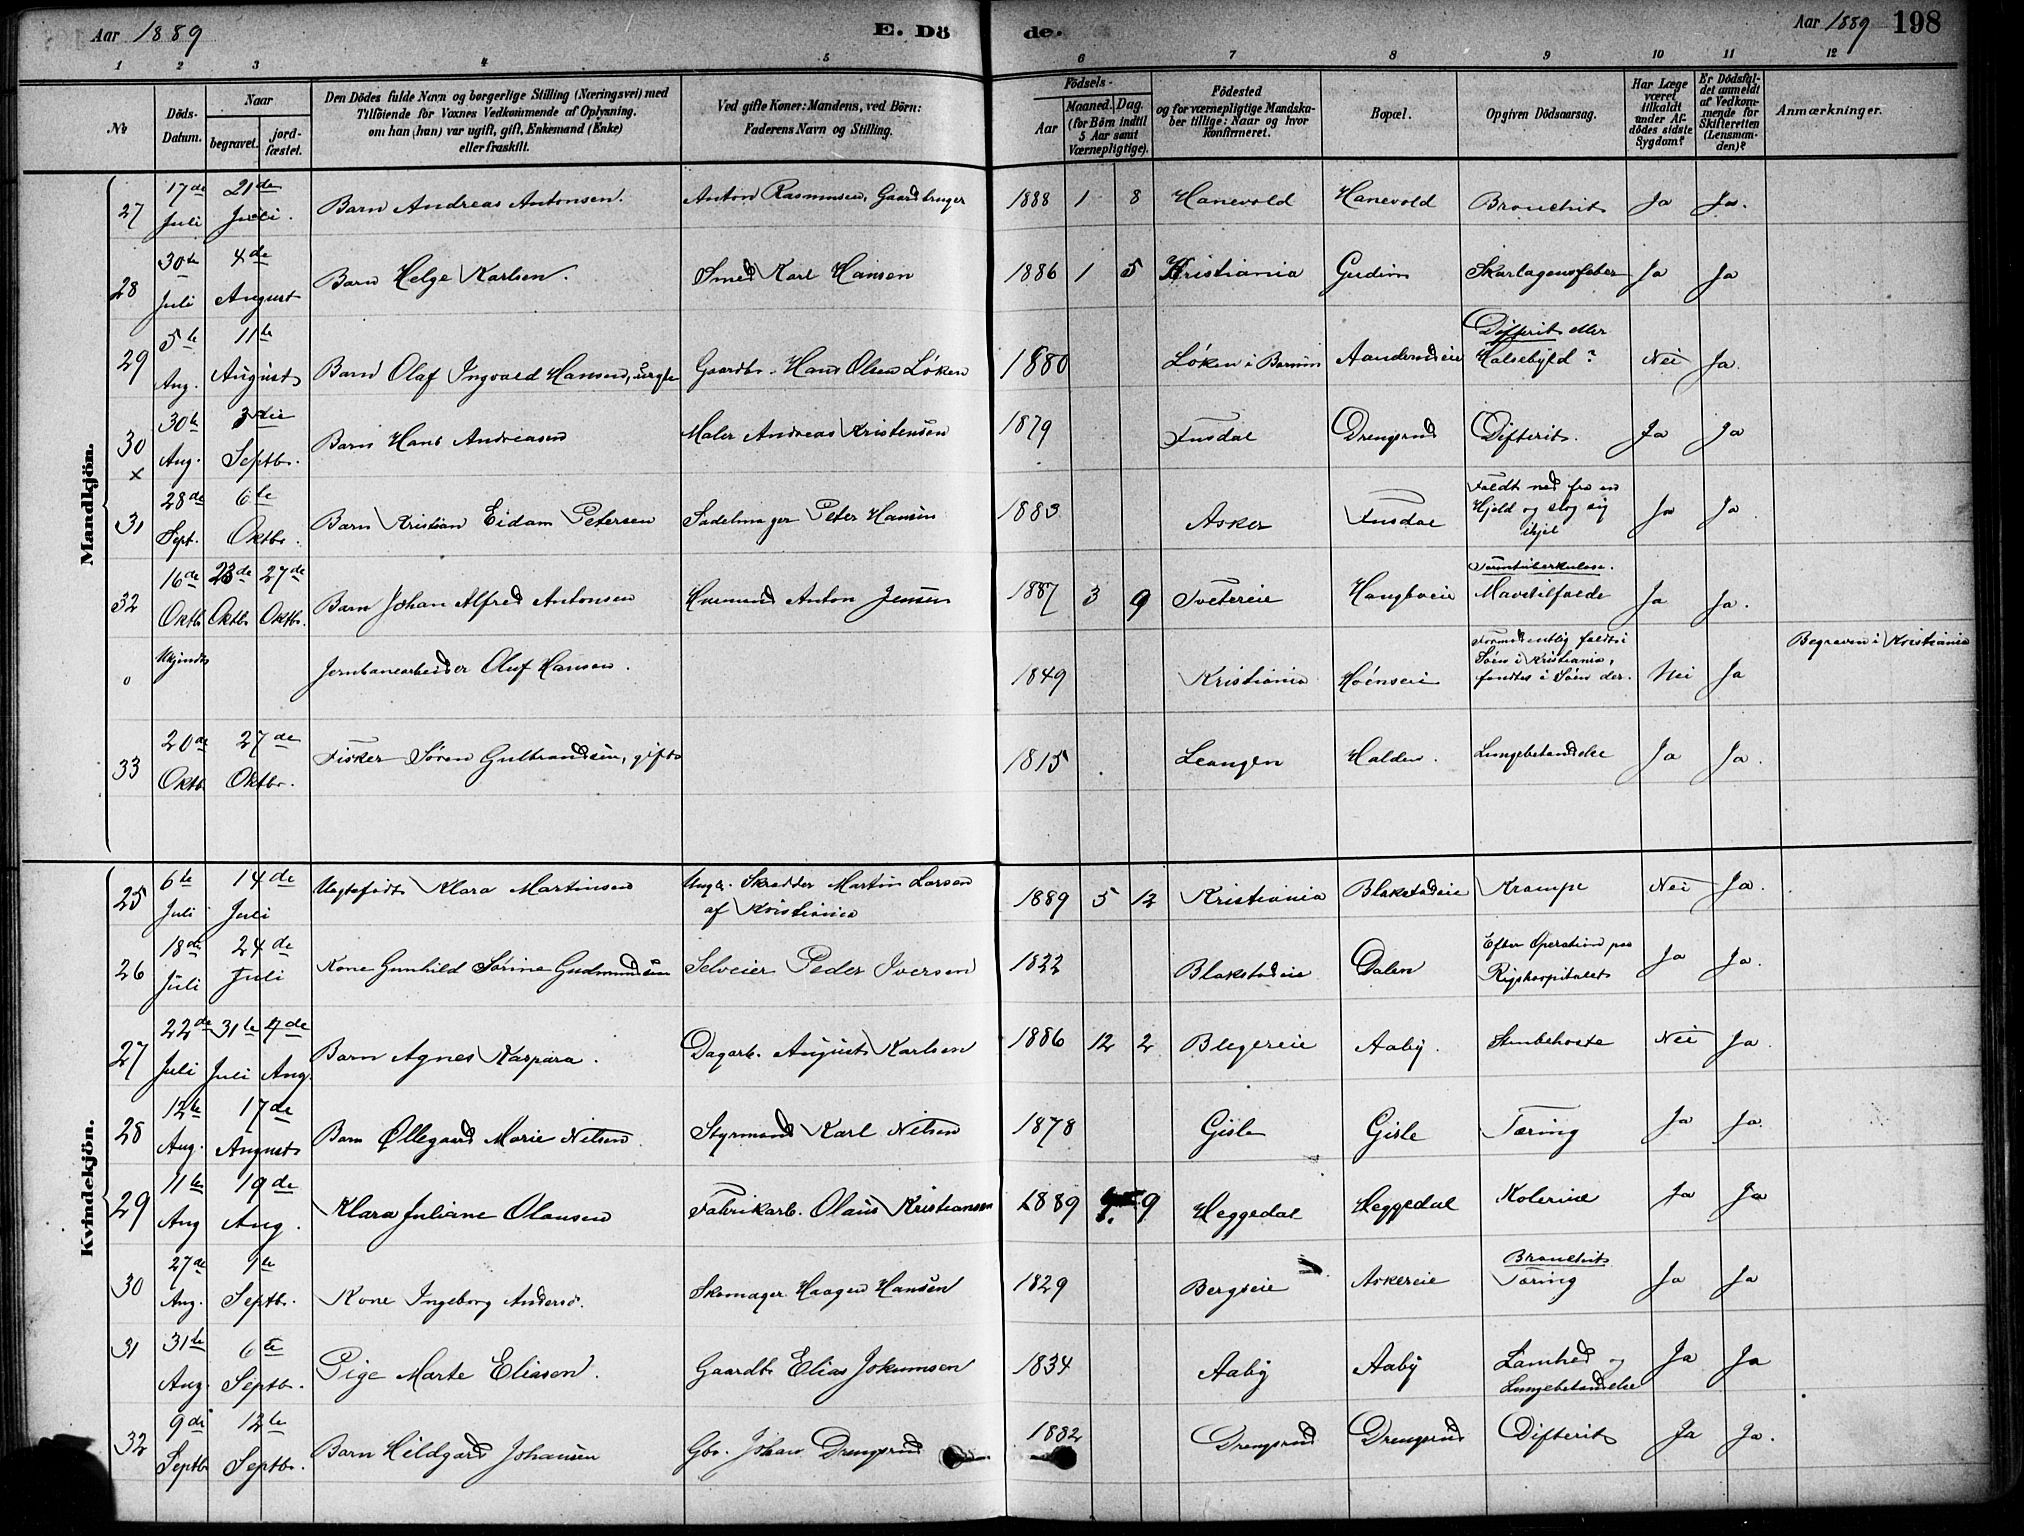 Aar 1889 E. Dö de. Aar 1889 198
1 2 3 4 5 6 7 8 9 10 11 12
No Döds-Datum. Naar begravet. jordfæstet. Den Dödes fulde Navn og borgerlige Stilling (Næringsvei) med Tilföiende for Voxnes Vedkommende af Oplysning, om han (hun) var ugift, gift, Enkemand (Enke) eller fraskilt. Ved gifte Koner: Mandens, ved Börn: Faderens Navn og Stilling. Födsels- Aar Maaned. Dag. (for Börn indtil 5 Aar samt Værnepligtige). Födested og for værnepligtige Mandskaber tillige: Naar og hvor konfirmeret. Bopæl. Opgiven Dödsaarsag. Har Læge været tilkaldt under Afdödes sidste Sygdom? Er Dödsfaldet anmeldt af Vedkommende for Skifteretten (Lensmanden)? Anmærkninger.
Mandkjön.
27 17de Juli 21de Juli. Barn Andreas Antonsen. Anton Rasmussen, Gaardbruger 1888 1 8 Hanevold Hanevold Bronchit Ja Ja.
28 30te Juli 4de August Barn Helge Karlsen. Smed Karl Hansen 1886 1 5 Kristiania Gudim Skarlagensfeber Ja Ja
29 5te Aug. 11te August Barn Olaf Ingvald Hansen, uægte Gaardbr. Hans Olsen Løken 1880 Løken i Bærum Difterit eller Halsebyld? Nei Ja.
30 x 30te Aug. 3die Septbr. Barn Hans Andreasen Maler Andreas Kristensen 1879 Fusdal Drengsrud Difterit. Ja Ja
31 28de Sept. 6te Oktbr. Barn Kristian Eidam Petersen Sadelmager Peter Hansen 1883 Asker Fusdal Faldt ned fra en Hjeld og slog sig ihjel Ja Ja.
32 16de Oktbr 23de Oktbr 27de Oktbr. Barn Johan Alfred Antonsen Husmand Anton Jensen 1887 3 9 Tvetereie Mavetilfælde Ja Ja.
0 Ukjendt Jernbanearbeider Oluf Hansen. 1849 Kristiania Høenseie Formodentlig faldt i Søen i Kristiania, fandtes i Søen der. Nei Ja Begraven i Kristiania
33 20de Oktbr 27de Oktbr. Fisker Søren Gulbrandsen, gift 1815 Leangen Halden. Lungebetændelse Ja Ja.
Kvindekjön.
25 6te Juli 14de Juli Uægtefødt Klara Martinsen Ungk. Skrædder Martin Larsen af Kristiania 1889 5 12 Kristiania Blakstadeie Krampe Nei Ja.
26 18de Juli 24de Juli Kone Gunhild Sørine Gudmundsen Selveier Peder Iversen 1822 Blakstadeie Dalen Efter Operation paa Rigshospitalet Ja Ja.
27 22de Juli 31te Juli 4de Aug. Barn Agnes Kaspara. Dagarb. August Karlsen 1886 12 2 Aaby. Strubehoste Nei Ja.
28 12te Aug. 17de August Barn Øllegaard Marie Nilsen. Styrmand Karl Nilsen 1878 Gisle Gisle Tæring Ja Ja.
29 11te Aug 19de Aug. Klara Juliane Olausen Fabrikarb. Olaus Kristiansen 1889 9 Heggedal Heggedal Kolerine Ja Ja
30 27de Aug. 1te Septbr. Kone Ingeborg Andersd. Skomager Haagen Hansen 1829 Bergseie Askereie Bronchit Tæring Ja Ja
31 31te Aug. 6te Septbr. Pige Marte Eliasen. Gaardbr. Elias Jokumsen 1834 Aaby Aaby Lamhed og Lungebetændelse Ja Ja
32 9de Septbr 12te Septbr. Barn Hildgard Johansen Gbr. Johan Drengsrud 1882 Drengsrud Drengsrud Difterit Ja Ja.